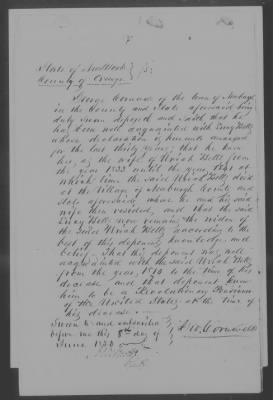 State of New York
County of Orange } ss:
George Cornwell of the town of Newburgh
in the County and State aforesaid being
duly sworn deposeth and saith that he
has been well acquainted with
whose declaration is hereunto annexed
for the last thirty years; that he knew
her, as the wife of Uriah Kelly from
the year 1833 until the year 1841 at
which time the said Uriah Kelly died
at the Village of Newburgh County and
State aforesaid, where he and his said
wife then resided, and that the said
remains the widow of
the said Uriah Kelly according to the
best of this deponents knowledge and
belief - That this deponent was well
acquainted with the said Uriah Kelly
from the year, to the time of his
decease and that deponent knew
him to be a Revolutionary Pensioner
of the United States at the time of
his decease.
Sworn to and subscribed
before me this 8th day of
June 1853